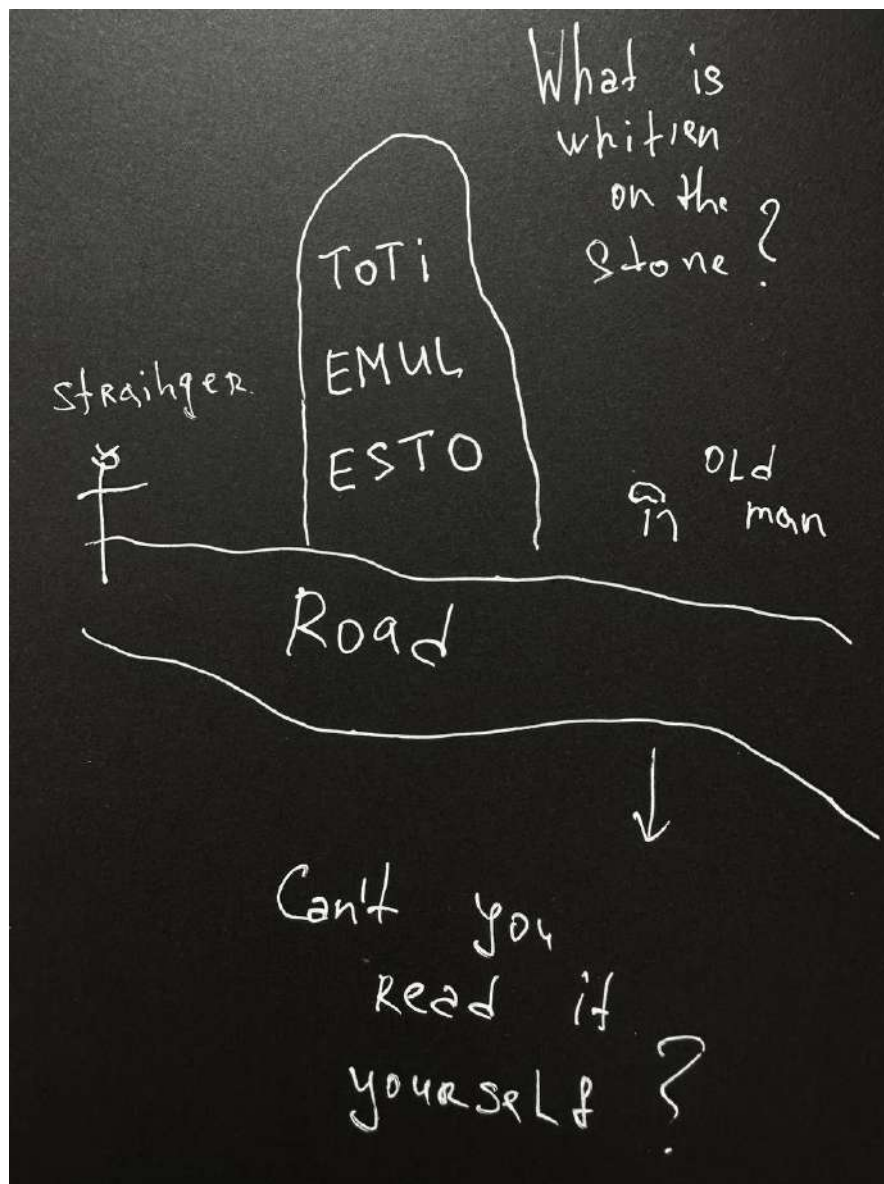 What is
whitten
on the
Stone?
ToTi
EMUL
ESTO
Straihger.
OLd
man
Road
Can't you
Read it
yourself?